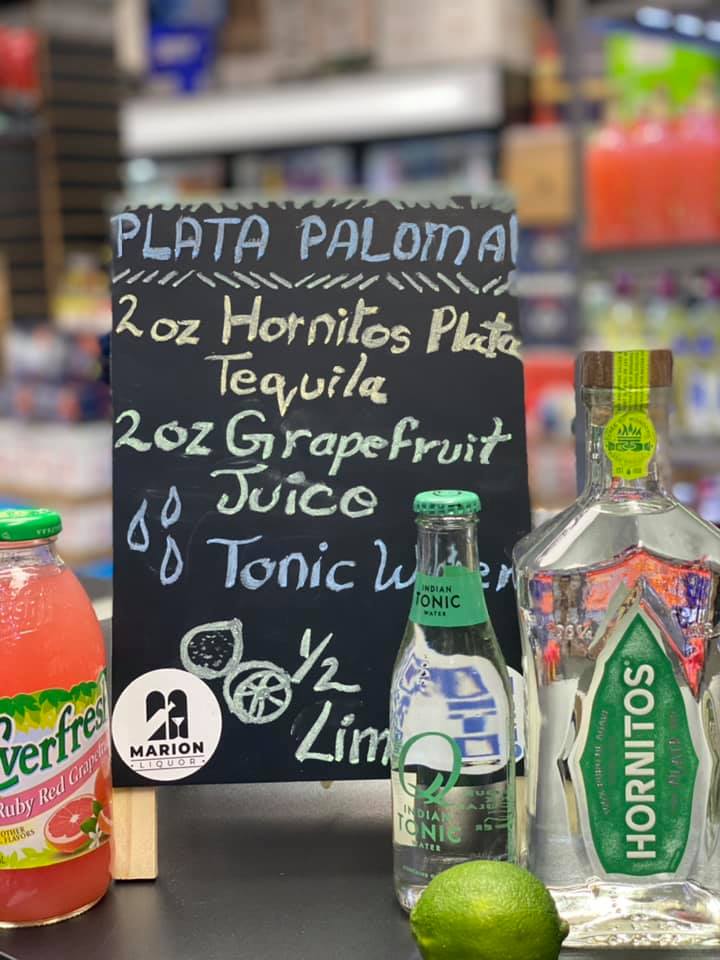 PLATA PALOMA
2 oz Hornitos Plata
Tequila
2 oz Grapefruit
Juice
Tonic
1/2
Lim
MARION
LIQUOR
Everfresh
Ruby Red Grapefruit
OTHER
FLAVORS
INDIAN
TONIC
WATER
Q
INDIAN
TONIC
WATER
HORNITOS
PLATA